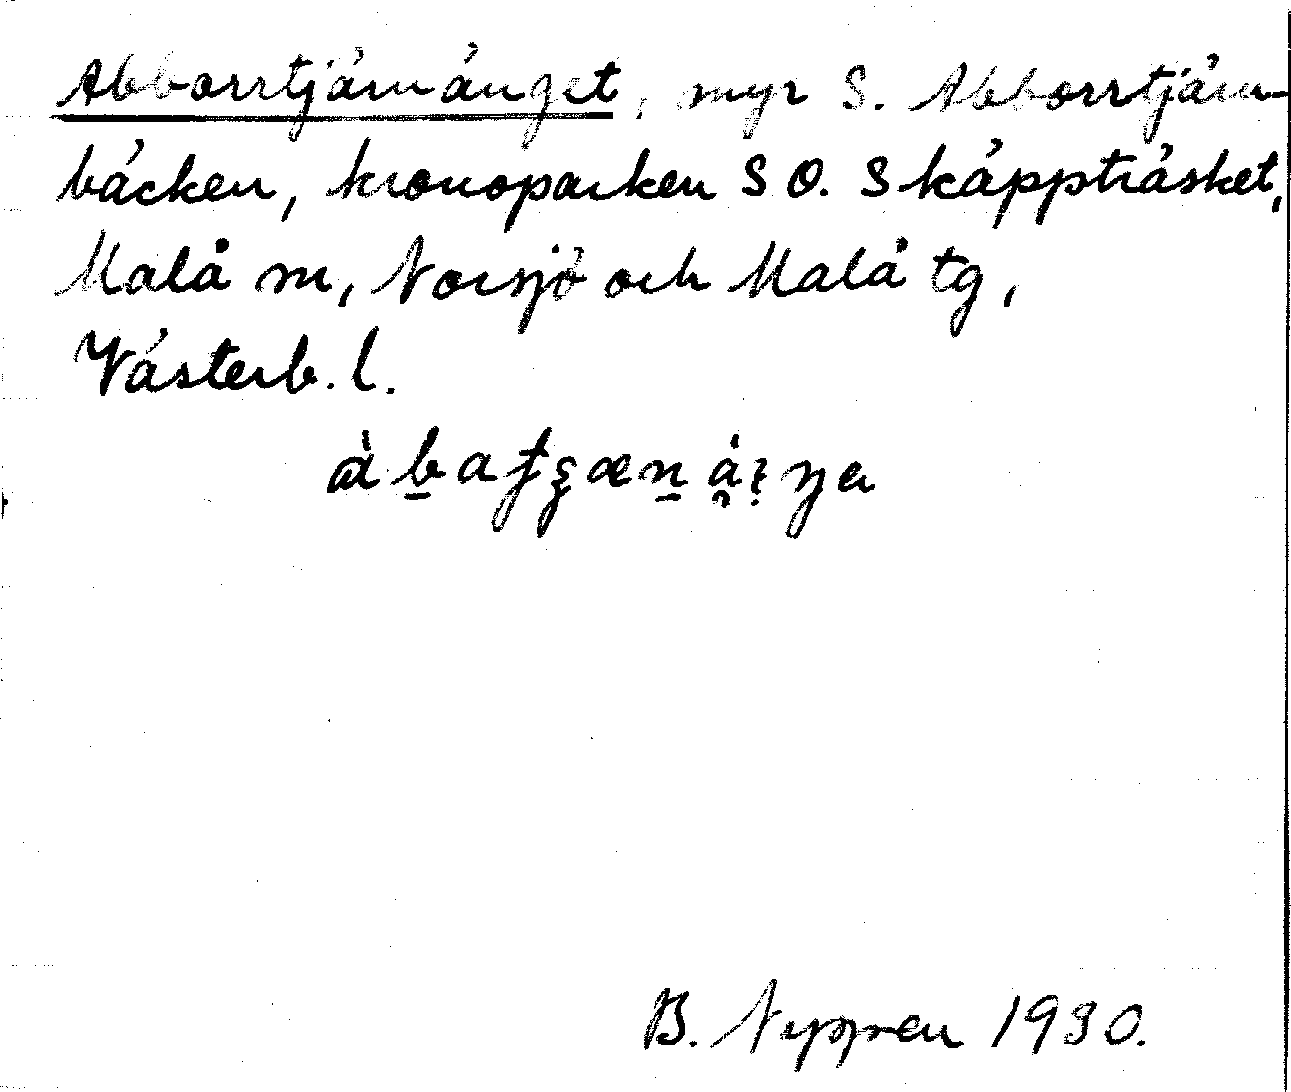 Abborrtjärnänget, myr S. Abborrtjärn-
bäcken, kronoparken S O. Skäppträsket,
Malå sn, Norsjö och Malå tg,
Västerb. l.
B. Nyppren 1930.